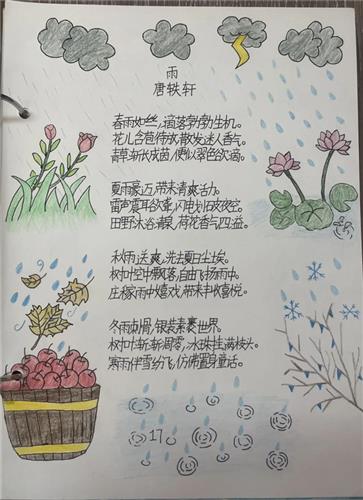 雨
唐轶轩
春雨如丝,滴落勃勃生机。
花儿含苞待放,散发迷人香气。
青草渐长成茵,便似翠色欲滴。
夏雨豪迈,带来清爽活力。
雷声震耳欲聋,闪电划破夜空。
田野沐浴清泉,荷花香气四溢。
秋雨送爽,洗去夏日尘埃。
树叶空中飘落,自由飞扬雨中。
庄稼雨中嬉戏,带来丰收喜悦。
冬雨刺骨,银装素裹世界。
树叶渐渐凋零,冰珠挂满枝头。
寒雨伴雪纷飞,仿佛置身童话。
17